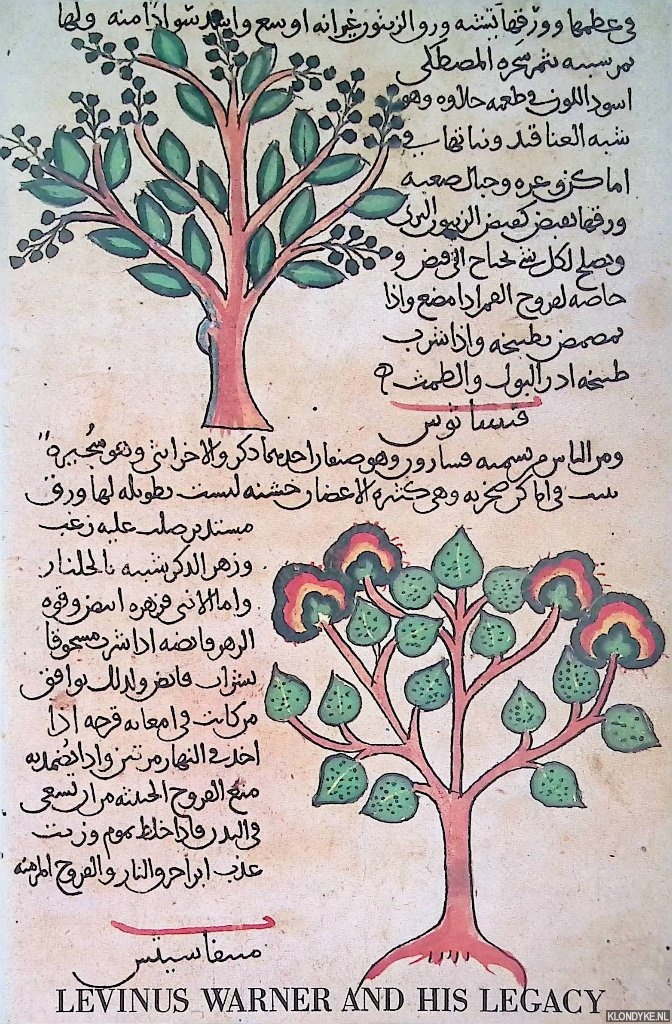 في عظمها وورقها يشبه ورق الزيتون غير انه اوسع واشد سوادا منه ولها
ثمر شبيه بثمر شجرة المصطكى
اسود اللون في طعمه حلاوه وهو
شبه العناقيد ونباتها في
اماكن وعره وجبال صعبه
ورقها يقبض كقبض الزيتون البري
ويصلح لكل شي يحتاج الى قبض و
خاصه لقروح الفم اذا مضع واذا
تمضمض بطبيخه واذا شرب
طبيخه ادر البول والطمث
قستانوس
ومن الناس من يسميه قسارون وهو صنفان احدهما ذكر والاخر انثى وهو شجيرة
تنبت في اماكن صخريه وهي كثيرة الاغصان خشنه ليست بطويله لها ورق
مستدير صلب عليه زغب
وزهر الذكر شبيه بالجلنار
واما الانثى فزهره ابيض وقوه
الزهر قابضه اذا شرب مسحوقا
بشراب قابض ولذلك يوافق
من كانت في امعائه قرحه اذا
اخذ في النهار مرتين واذا تضمد به
منع القروح الخبيثه من ان تسعى
في البدن فاذا خلط بموم وزيت
عذب ابرا حرق النار والقروح المزمنه
LEVINUS WARNER AND HIS LEGACY
KLONDYKE.NL